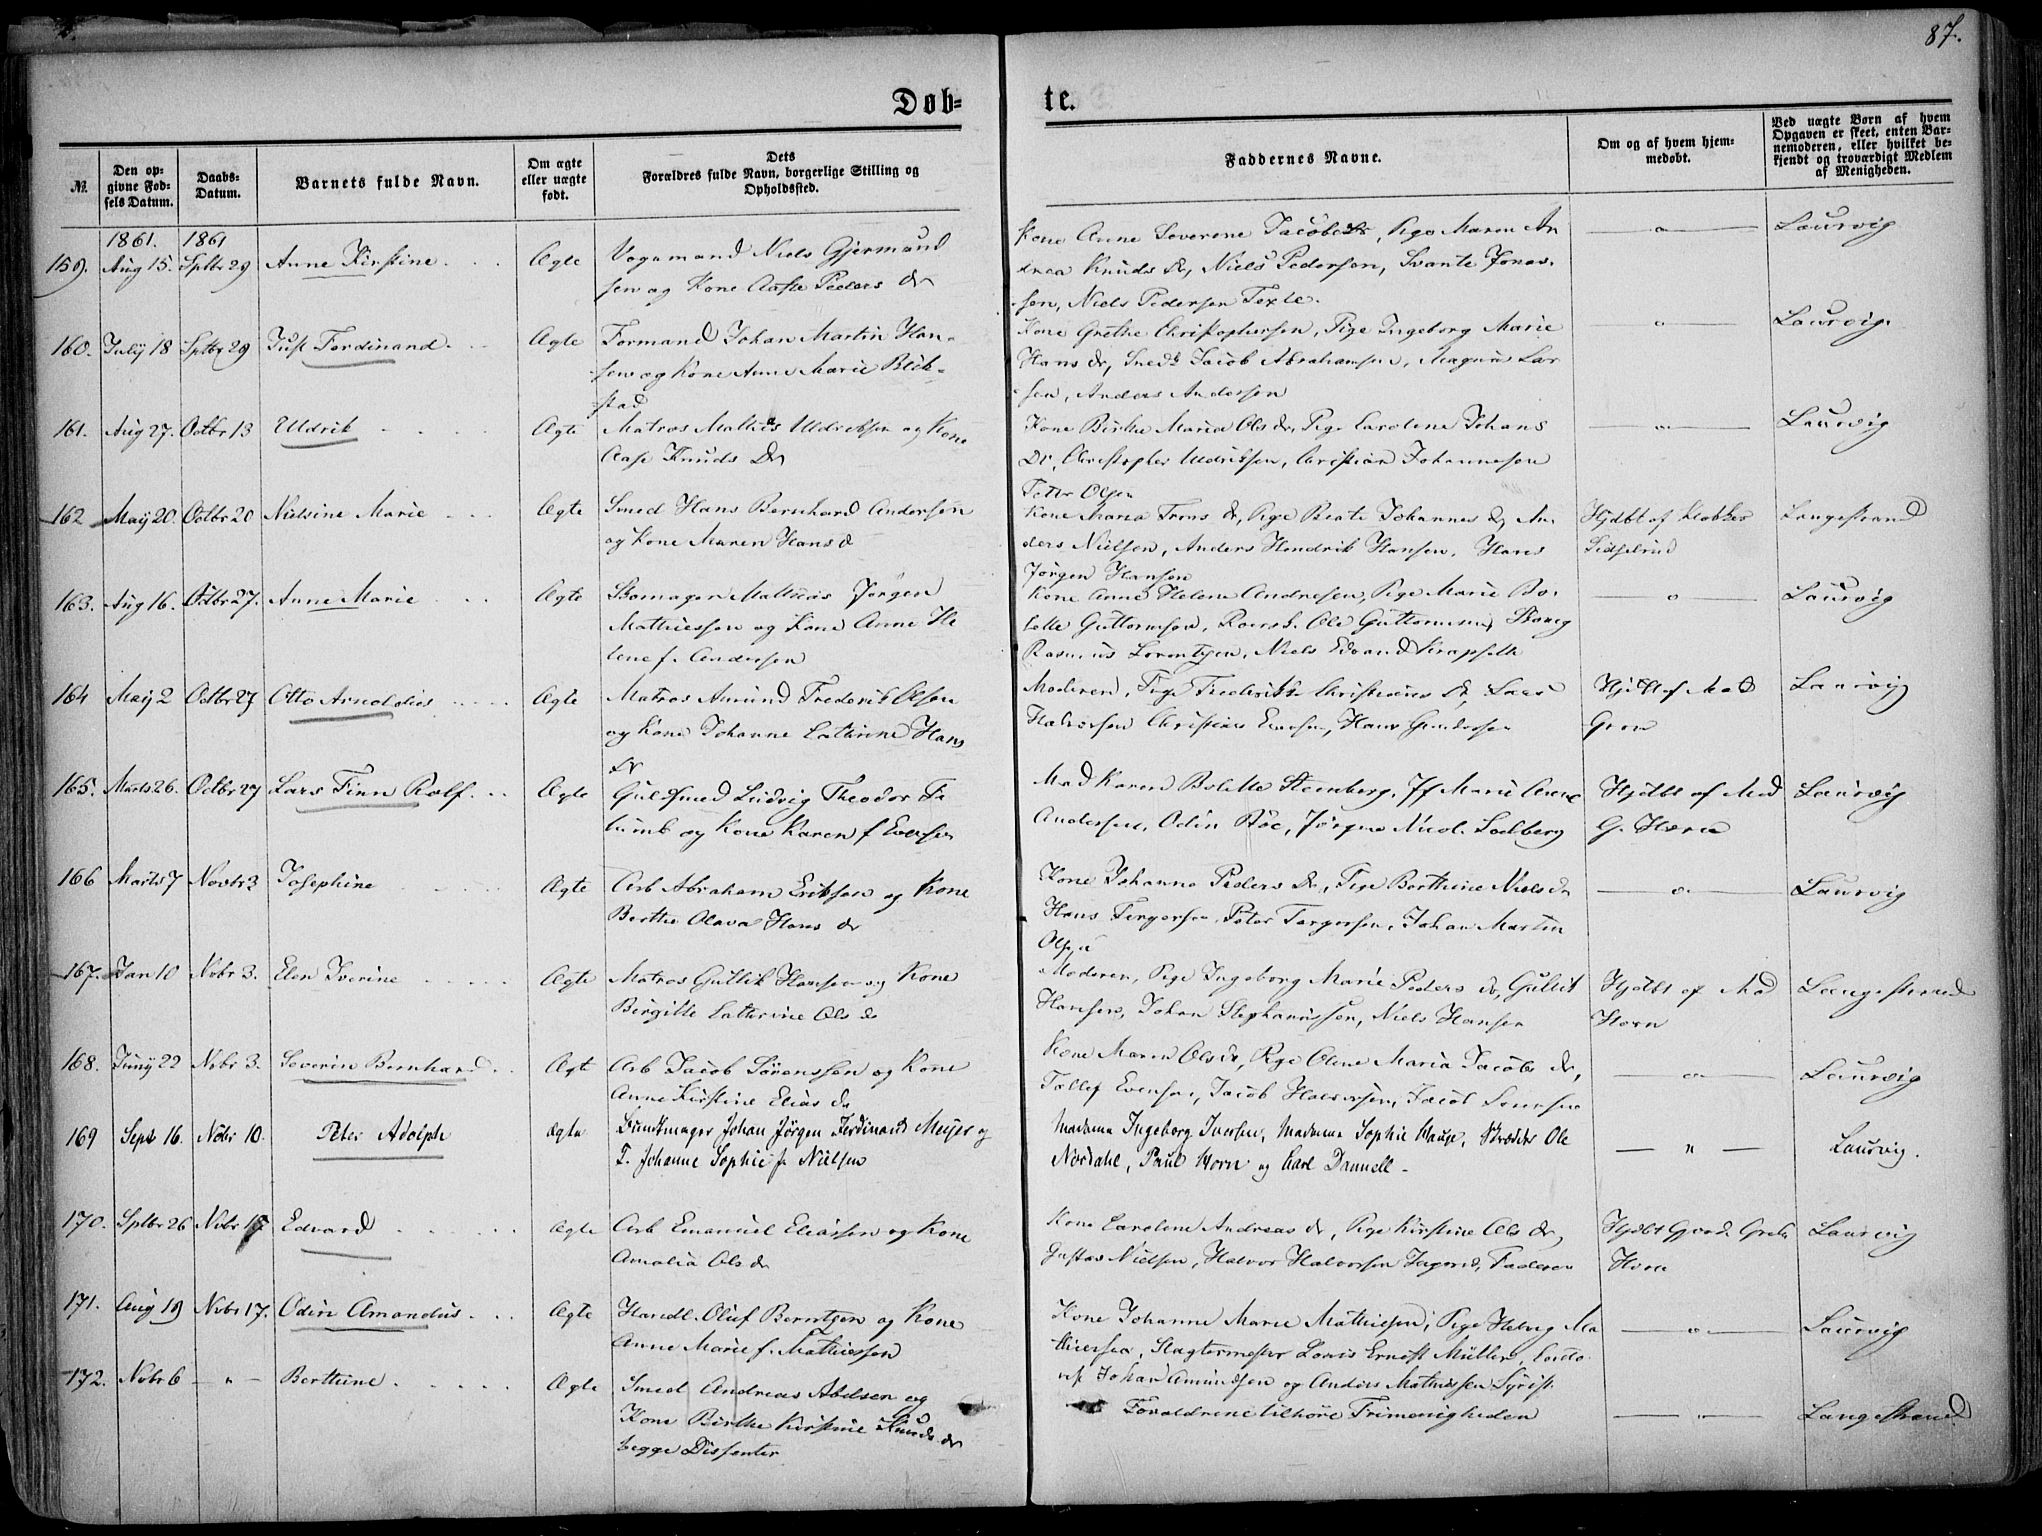 87.
Døb=
te.
№
Den op-
givne Fød-
sels Datum.
Daabs-
Datum.
Barnets fulde Navn.
Om ægte
eller uægte
født.
Dets
Forældres fulde Navn, borgerlige Stilling og
Opholdssted.
Faddernes Navne.
Om og af hvem hjem-
medøbt.
Ved uægte Børn af hvem
Opgaven er skeet, enten Bar-
nemoderen, eller hvilket be-
kjendt og troværdigt Medlem
af Menigheden.
1861. 1861
159. Aug 15. Sptbr 29 Anne Kirstine Ægte
Vognmand Niels Gjermund
sen og Kone Aaste Peders Dr
Kone Anne Severine Jacobs Dr, Pige Maren An
drea Knuds Dr, Niels Pedersen, Svante Jonas-
sen, Niels Pedersen
Laurvig
160. July 18 Sptbr 29 Just Ferdinand Ægte
Formand Johan Martin Han-
sen og Kone Anne Marie Blik-
stad
Kone Grethe Christophersen, Pige Ingeborg Marie
Hans Dr, Smed Jacob Abrahamsen, Magnus Lar
sen, Anders Andersen
Laurvig.
161. Aug 27. Octbr 13 Uldrik Ægte
Matros Mathias Uldriksen og Kone
Aase Knuds Dr
Kone Birthe Maria Ols dr, Pige Caroline Johans
Dr, Christopher Uldriksen, Christian Johannesen
Petter Olsen
Laurvig
162 May 20. Octbr 20 Nielsine Marie Ægte
Smed Hans Bernhard Andersen
og Kone Maren Hans d
Kone Maria Trons dr, Pige Beate Johannes d, An
ders Nielsen, Anders Hendrik Hansen, Hans
Jørgen Hansen
Hjdbt af Klokker
Langestrand
163. Aug 16. Octbr 27. Anne Marie Ægte
Skomager Mathias Jørgen
Mathiessen og Kone Anne He
lene f. Andersen
Kone Anne Helene Andresen, Pige Marie Bo-
lette Guttormsen, Ole Guttormsen,
Rasmus Lorentzen, Niels Edvard
Laurvig
164 May 2 Octbr 27 Otto Arnoldus Ægte
Matros Amund Frederik Olsen
og Kone Johanne Cathrine Hans
dr
Moderen, Pige Frederikke Christians dr, Lars
Halvorsen Christian Evensen, Hans Gundersen
Hjdbt af Mad
Laurvig
165. Marts 26. Octbr 27 Lars Finn Rolf Ægte
Guldsmed Ludvig Theodor
og Kone Karen f Evensen
Mad Karen Bolette Stenberg, Jf Marie Anne
Andersen, Odin Røe, Jørgen Nicol. Sodberg
Hjdbt af Mad
G. Horn
Laurvig
166 Marts 7 Novbr 3 Josephine Ægte
Arb Abraham Eriksen og Kone
Berthe Olava Hans dr
Kone Johanne Peders dr, Pige Berthine Niels dr
Hans Torgersen, Peter Torgersen, Johan Martin
Olsen
Laurvig
167. Jan 10 Nvbr 3. Elen Iverine Ægte
Matros Gullik Hansen og Kone
Birgitte Cathrine Ols dr
Moderen, Pige Ingeborg Marie Peders dr, Gullik
Hansen, Johan Stephanssen, Niels Hansen
Hjdbt af Mad
Horn
Langestrand
168. Juny 22 Nvbr 3. Severin Bernhard Ægt
Arb Jacob Sørenssen og Kone
Anne Kirstine Elias dr
Kone Maren Ols dr, Pige Oline Maria Jacobs dr,
Tollef Evensen, Jacob Halvorsen, Jacob Sørensen
Laurvig
169 Sept 16. Nvbr 10. Peter Adolph ægte
Bundtmager Johan Jørgen Ferdinand Meijer og
F. Johanne Sophie f. Nielsen
Madame Ingeborg Iversen, Madame Sophie Hauge, Skræder Ole
Nordahl, Paul Horn og Carl Dannell.
Laurvig.
170. Sptbr 26 Nvbr 17 Edvard Ægte
Arb Emanuel Eliassen og Kone
Amalia Ols dr
Kone Caroline Andreas dr, Pige Kirstine Ols dr,
Gustav Nielsen, Halvor Halvorsen, Faderen
Hjdbt Gjord. Grethe
Horn
Laurvig
171. Aug 19 Nvbr 17. Odin Amandus Ægte
Handl. Oluf Berntzen og Kone
Anne Marie f. Mathiessen
Kone Johanne Marie Mathiesen, Pige Ma
thiesen, Slagtermester Louis Ernst Müller,
Johan Amundsen og Anders Mathiessen
Laurvig
172. Nvbr 6 — " — Berthine Ægte
Smed Andreas Abelsen og
Kone Birthe Kirstine Knuds dr
begge Dissenter
Forældrene tilhøre Frimenigheden
Langestrand